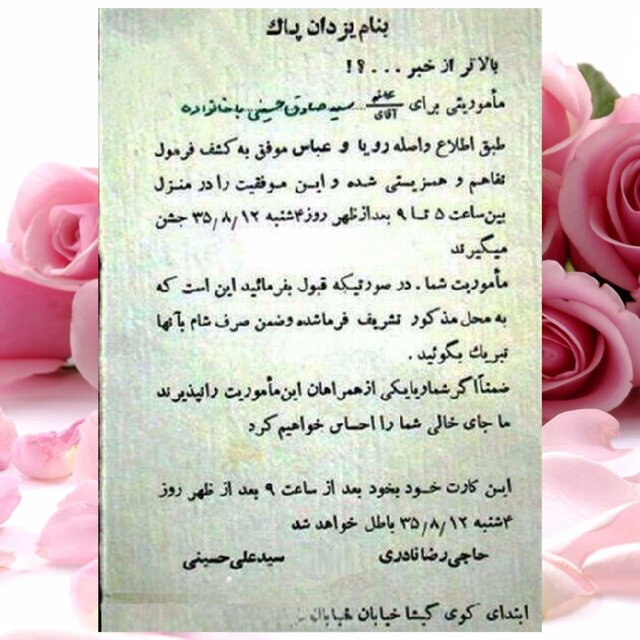 بنام یزدان پاك
بالاتر از خبر ...؟!
مأموریتی برای خانم آقای سید صادق حسینی با خانواده
طبق اطلاع واصله رویا و عباس موفق به کشف فرمول
تفاهم و همزیستی شده و ایـن موفقیت را در منزل
بین ساعت ۵ تـا ۹ بعدازظهر روز ۴شنبه ۳۵/۸/۱۲ جشن
میگیرند
مأموریت شما . در صورتیکه قبول بفرمائید این است که
به محل مذکور تشریف فرما شده و ضمن صرف شام بآنها
تبریك بگوئید .
ضمناً اگر شما و یا یکی از همراهان این مأموریت را نپذیرند
ما جای خالی شما را احساس خواهیم کرد
ایـن کارت خـود بخود بعد از ساعت ۹ بعد از ظهر روز
۴شنبه ۳۵/۸/۱۲ باطل خواهد شد
حاجی رضا نادری سید علی حسینی
ابتدای کوی گیشا خیابان